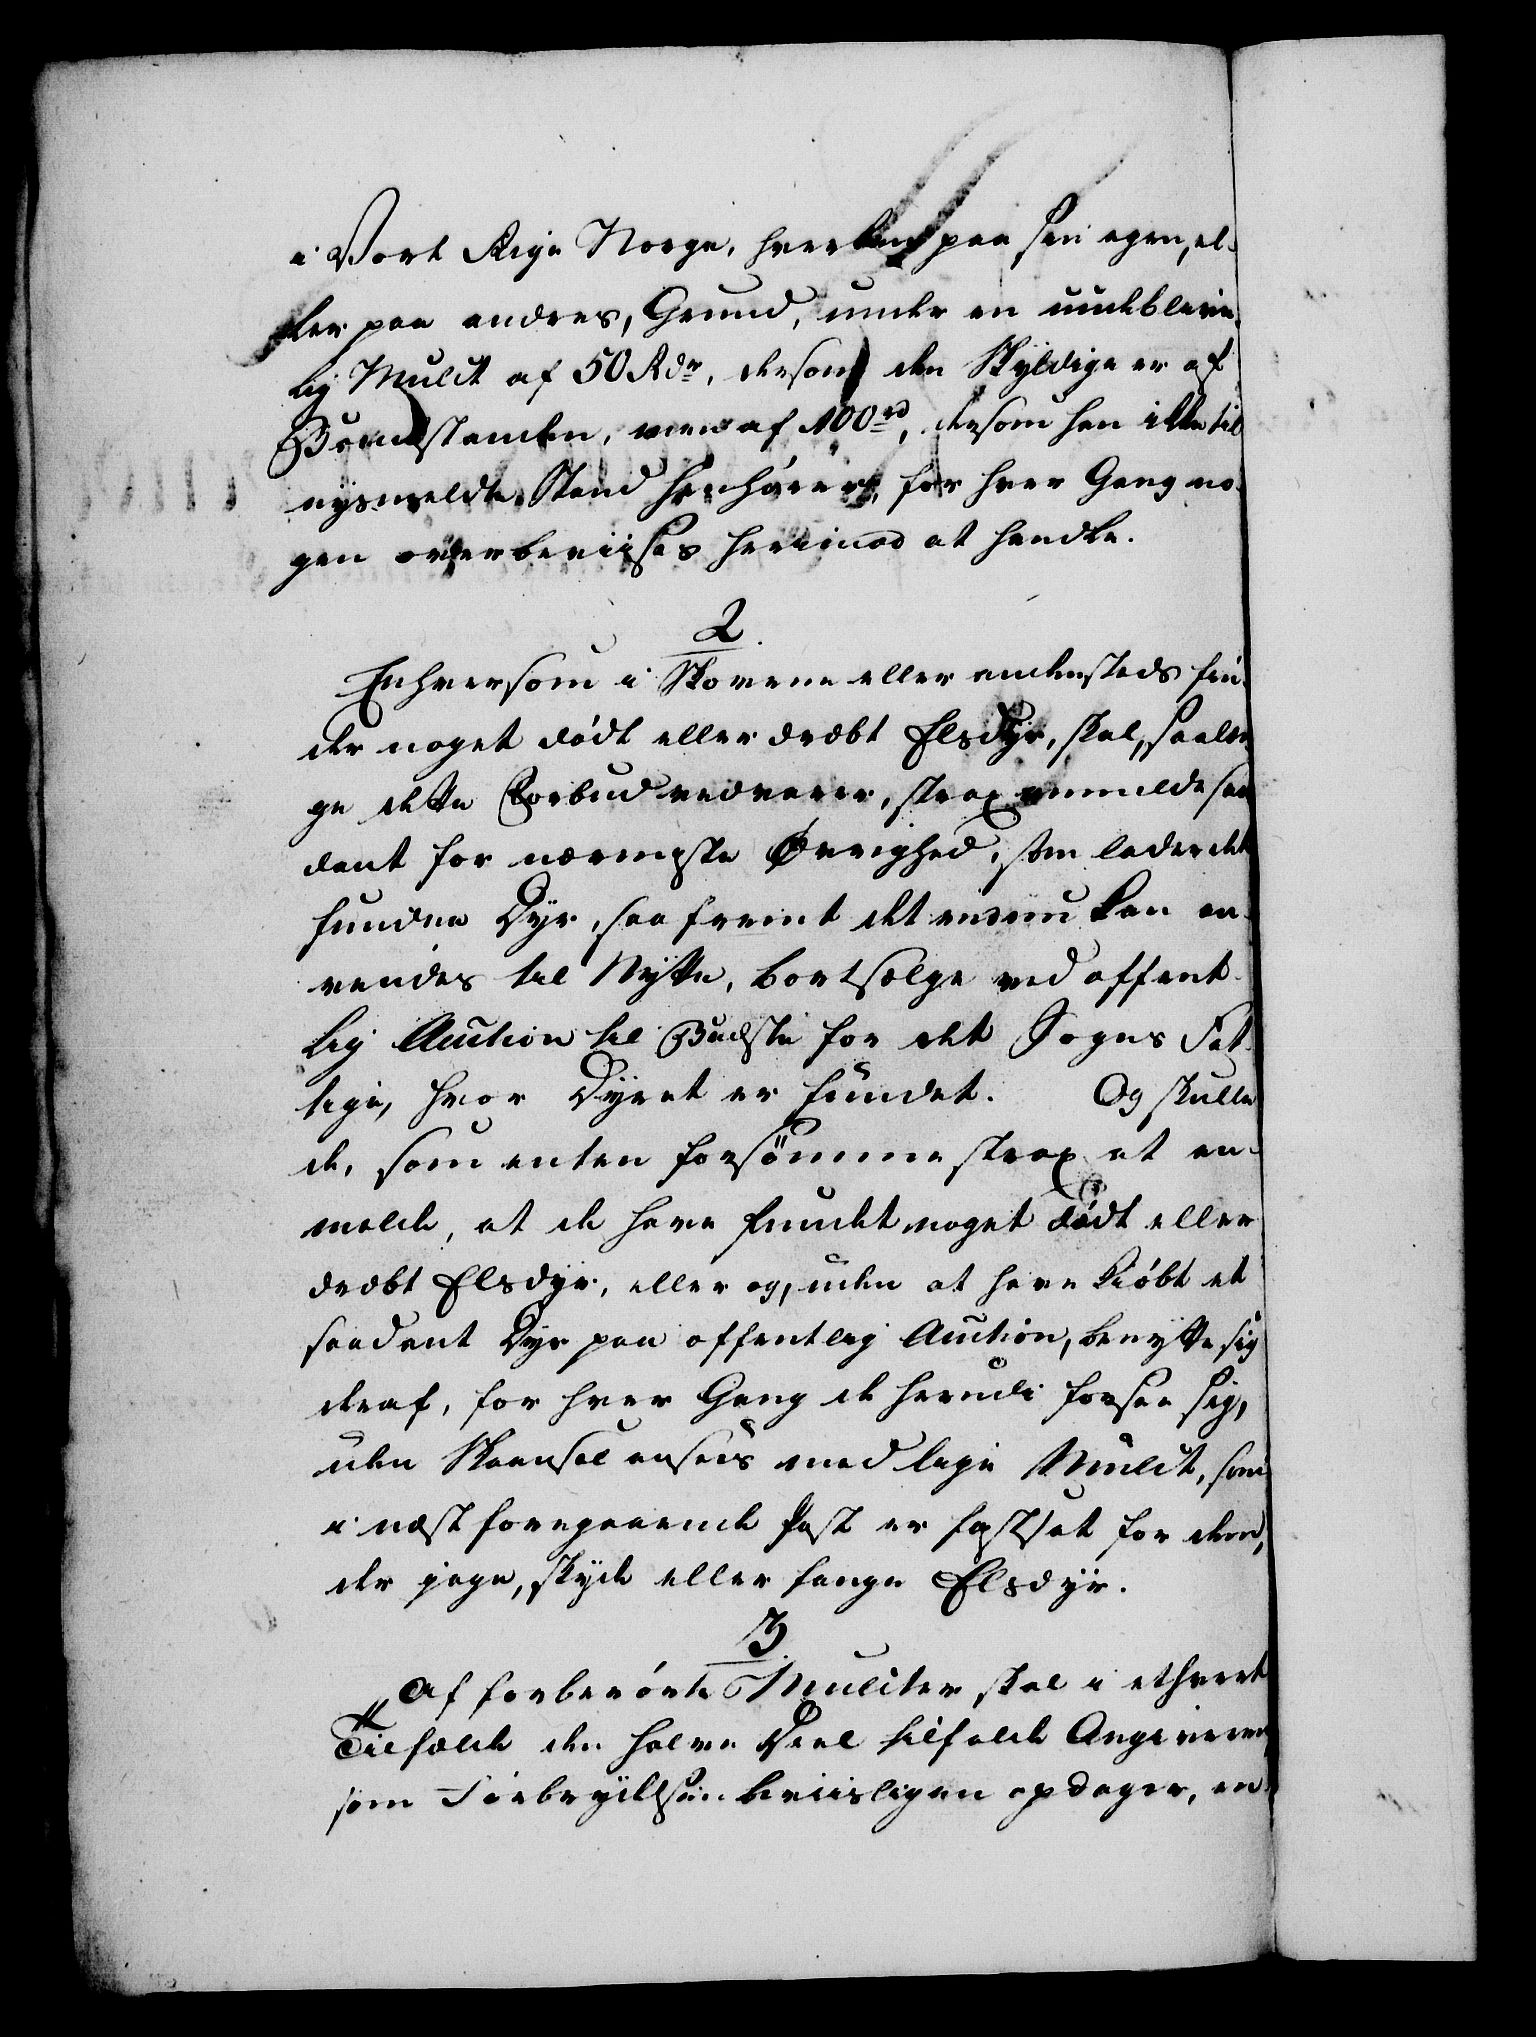 i Vort Rige Norge, hverken paa sin egen, el-
ler paa andres, Grund, under en uudeblive-
lig Mulct af 50 Rdr, dersom den Skyldige er af
Bondestanden, men af 100 rd, dersom han ikke til
nysmeldte Stand henhører, for hver Gang no-
gen overbeviises herimod at handle.
2.
Enhver som i Skovene eller andensteds fin-
der noget dödt eller dræbt Elsdyr, skal, saalæn
ge dette Forbud vedvarer, strax anmelde saa
dant for nærmeste Øvrighed, som lader det
fundne Dyr, saafremt det endnu kan an-
vendes til Nytte, bortsælge ved offent-
lig Auction til Beste for det Sogns Fat-
tige, hvor Dyret er fundet. Og skulle
de, som enten forsömme strax at an-
melde, at de have fundet noget dödt eller
dræbt Elsdyr, eller og, uden at have kiöbt et
saadant Dyr paa offentlig Auction, benytte sig
deraf, for hver Gang de herudi forsee sig,
uden Skaansel ansees med lige Mulct, som
i næstforegaaende Post er fastsat for dem,
der jage, skyde eller fange Elsdyr.
3.
Af forberörte Mulcter skal i ethvert
Tilfælde den halve Deel tilfalde Angiveren,
som Forbrydelsen beviisligen opdager, en-